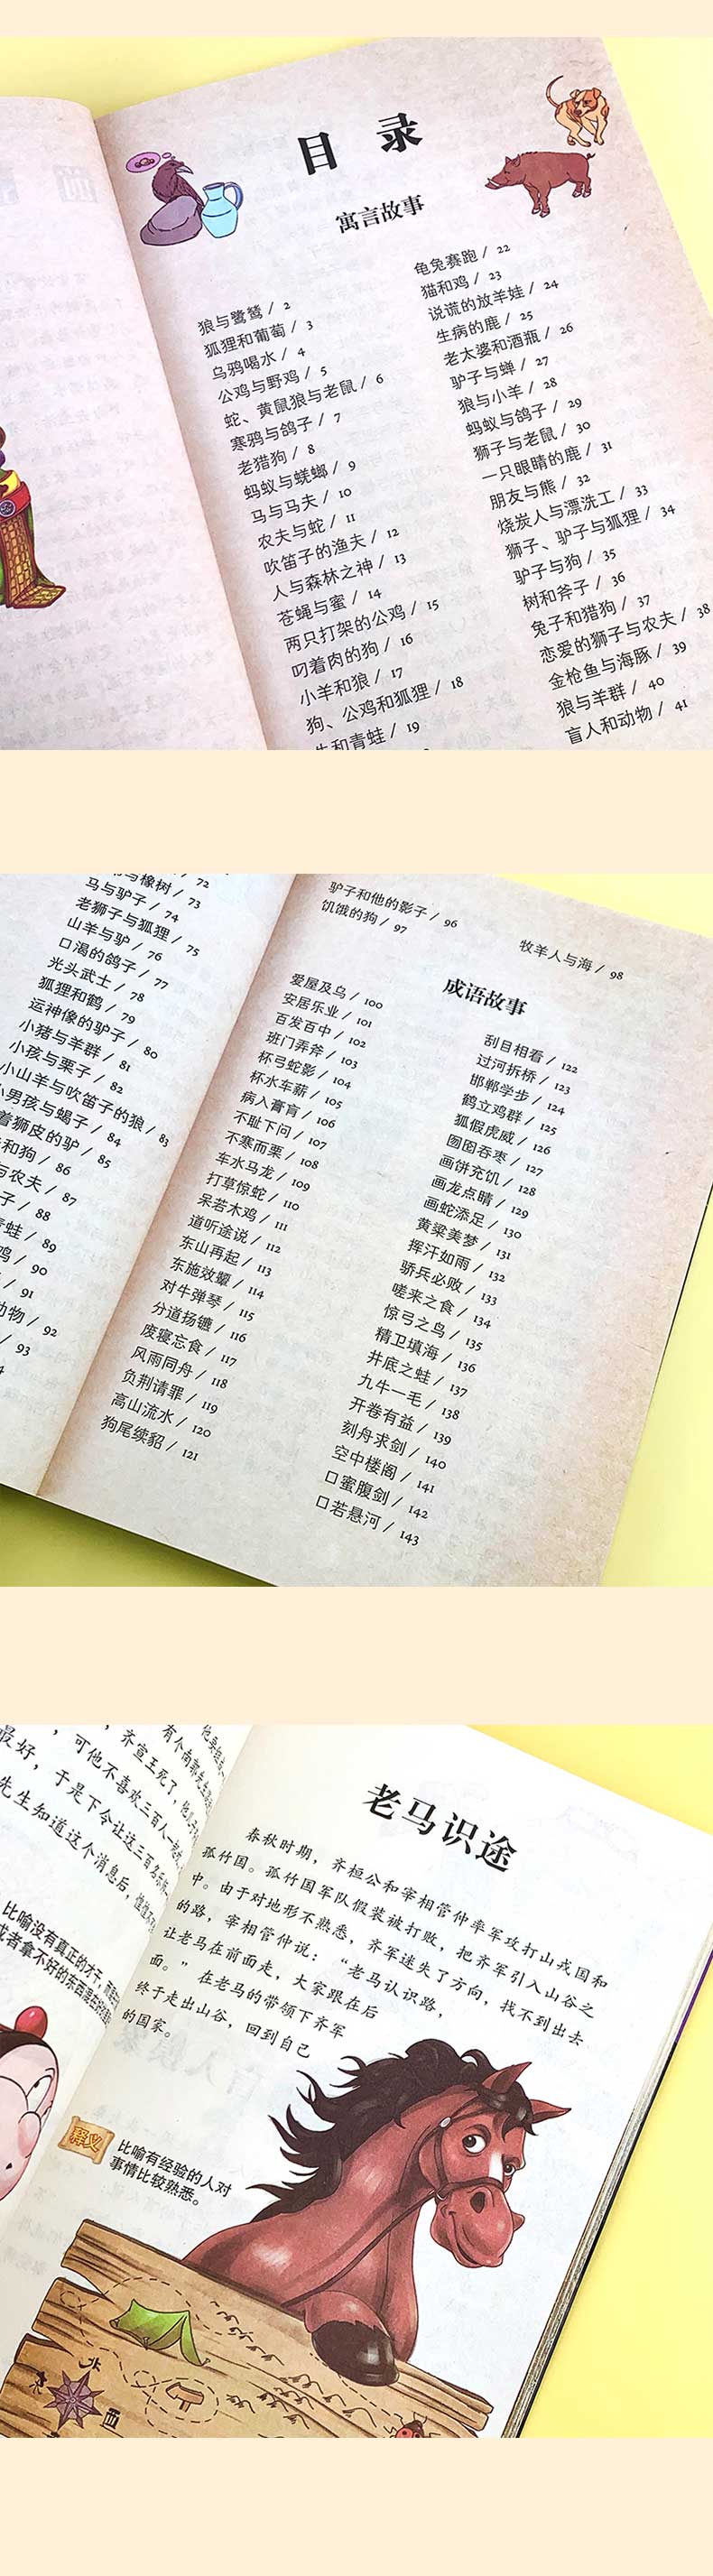 目 录
寓言故事
狼与鹭鸶 / 2
狐狸和葡萄 / 3
乌鸦喝水 / 4
公鸡与野鸡 / 5
蛇、黄鼠狼与老鼠 / 6
寒鸦与鸽子 / 7
老猎狗 / 8
蚂蚁与蜣螂 / 9
马与马夫 / 10
农夫与蛇 / 11
吹笛子的渔夫 / 12
人与森林之神 / 13
苍蝇与蜜 / 14
两只打架的公鸡 / 15
叼着肉的狗 / 16
小羊和狼 / 17
狗、公鸡和狐狸 / 18
牛和青蛙 / 19
龟兔赛跑 / 22
猫和鸡 / 23
说谎的放羊娃 / 24
生病的鹿 / 25
老太婆和酒瓶 / 26
驴子与蝉 / 27
狼与小羊 / 28
蚂蚁与鸽子 / 29
狮子与老鼠 / 30
一只眼睛的鹿 / 31
朋友与熊 / 32
烧炭人与漂洗工 / 33
狮子、驴子与狐狸 / 34
驴子与狗 / 35
树和斧子 / 36
兔子和猎狗 / 37
恋爱的狮子与农夫 / 38
金枪鱼与海豚 / 39
狼与羊群 / 40
盲人和动物 / 41
72
与橡树 / 73
马与驴子 / 74
老狮子与狐狸 / 75
山羊与驴 / 76
口渴的鸽子 / 77
光头武士 / 78
狐狸和鹤 / 79
运神像的驴子 / 80
小猪与羊群 / 81
小孩与栗子 / 82
小山羊与吹笛子的狼 / 83
小男孩与蝎子 / 84
着狮皮的驴 / 85
和狗 / 86
与农夫 / 87
子 / 88
青蛙 / 89
鸡 / 90
/ 91
动物 / 92
/ 93
驴子和他的影子 / 96
饥饿的狗 / 97
牧羊人与海 / 98
成语故事
爱屋及乌 / 100
安居乐业 / 101
百发百中 / 102
班门弄斧 / 103
杯弓蛇影 / 104
杯水车薪 / 105
病入膏肓 / 106
不耻下问 / 107
不寒而栗 / 108
车水马龙 / 109
打草惊蛇 / 110
呆若木鸡 / 111
道听途说 / 112
东山再起 / 113
东施效颦 / 114
对牛弹琴 / 115
分道扬镳 / 116
废寝忘食 / 117
风雨同舟 / 118
负荆请罪 / 119
高山流水 / 120
狗尾续貂 / 121
刮目相看 / 122
过河拆桥 / 123
邯郸学步 / 124
鹤立鸡群 / 125
狐假虎威 / 126
囫囵吞枣 / 127
画饼充饥 / 128
画龙点睛 / 129
画蛇添足 / 130
黄粱美梦 / 131
挥汗如雨 / 132
骄兵必败 / 133
嗟来之食 / 134
惊弓之鸟 / 135
精卫填海 / 136
井底之蛙 / 137
九牛一毛 / 138
开卷有益 / 139
刻舟求剑 / 140
空中楼阁 / 141
口蜜腹剑 / 142
口若悬河 / 143
有个南郭先生
，齐宣王死了，他儿子
，可他不喜欢三百人一起吹，
最好，于是下令让这三百名乐师
先生知道这个消息后，
比喻没有真正的才干，而
或者拿不好的东西混在好的
老马识途
春秋时期，齐桓公和宰相管仲率军攻打山戎国和
孤竹国。孤竹国军队假装被打败，把齐军引入山谷之
中。由于对地形不熟悉，齐军迷失了方向，找不到出去
的路，宰相管仲说：“老马认识路，
让老马在前面走，大家跟在后
面。”在老马的带领下齐军
终于走出山谷，回到自己
的国家。
释义
比喻有经验的人对
事情比较熟悉。
北
东
西